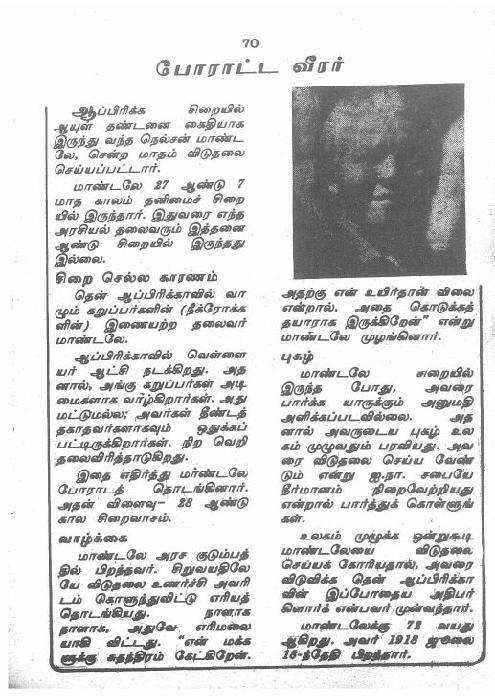 70
போராட்ட வீரர்
ஆப்பிரிக்க சிறையில்
ஆயுள் தண்டனை கைதியாக
இருந்து வந்த நெல்சன் மாண்ட
லே, சென்ற மாதம் விடுதலை
செய்யப்பட்டார்.
மாண்டலே 27 ஆண்டு 7
மாத காலம் தனிமைச் சிறை
யில் இருந்தார். இதுவரை எந்த
அரசியல் தலைவரும் இத்தனை
ஆண்டு சிறையில் இருந்தது
இல்லை.
சிறை செல்ல காரணம்
தென் ஆப்பிரிக்காவில் வா
மும் கறுப்பர்களின் (நீக்ரோக்க
ளின்) இணையற்ற தலைவர்
மாண்டலே.
ஆப்பிரிக்காவில் வெள்ளை
யர் ஆட்சி நடக்கிறது. அத
னால், அங்கு கறுப்பர்கள் அடி
மைகளாக வாழ்கிறார்கள். அது
மட்டுமல்ல; அவர்கள் தீண்டத்
தகாதவர்களாகவும் ஒதுக்கப்
பட்டிருக்கிறார்கள். நிற வெறி
தலைவிரித்தாடுகிறது.
இதை எதிர்த்து மாண்டலே
போராடத் தொடங்கினார்.
அதன் விளைவு- 28 ஆண்டு
கால சிறைவாசம்.
வாழ்க்கை
மாண்டலே அரச குடும்பத்
தில் பிறந்தவர். சிறுவயதிலே
யே விடுதலை உணர்ச்சி அவரி
டம் கொளுந்துவிட்டு எரியத்
தொடங்கியது. நாளாக
நாளாக, அதுவே எரிமலை
யாகி விட்டது. "என் மக்க
ளுக்கு சுதந்திரம் கேட்கிறேன்.
அதற்கு என் உயிர்தான் விலை
என்றால், அதை கொடுக்கத்
தயாராக இருக்கிறேன்" என்று
மாண்டலே முழங்கினார்.
புகழ்
மாண்டலே சறையில்
இருந்த போது, அவரை
பார்க்க யாருக்கும் அனுமதி
அளிக்கப்படவில்லை. அத
னால் அவருடைய புகழ் உல
கம் முழுவதும் பரவியது. அவ
ரை விடுதலை செய்ய வேண்
டும் என்று ஐ.நா. சபையே
தீர்மானம் நிறைவேற்றியது
என்றால் பார்த்துக் கொள்ளுங்
கள்.
உலகம் முழுக்க ஒன்றுகூடி
மாண்டலேயை விடுதலை
செய்யக் கோரியதால், அவரை
விடுவிக்க தென் ஆப்பிரிக்கா
வின் இப்போதைய அதிபர்
கிளார்க் என்பவர் முன்வந்தார்.
மாண்டலேக்கு 72 வயது
ஆகிறது. அவர் 1918 ஜூலை
18-ந்தேதி பிறந்தார்.